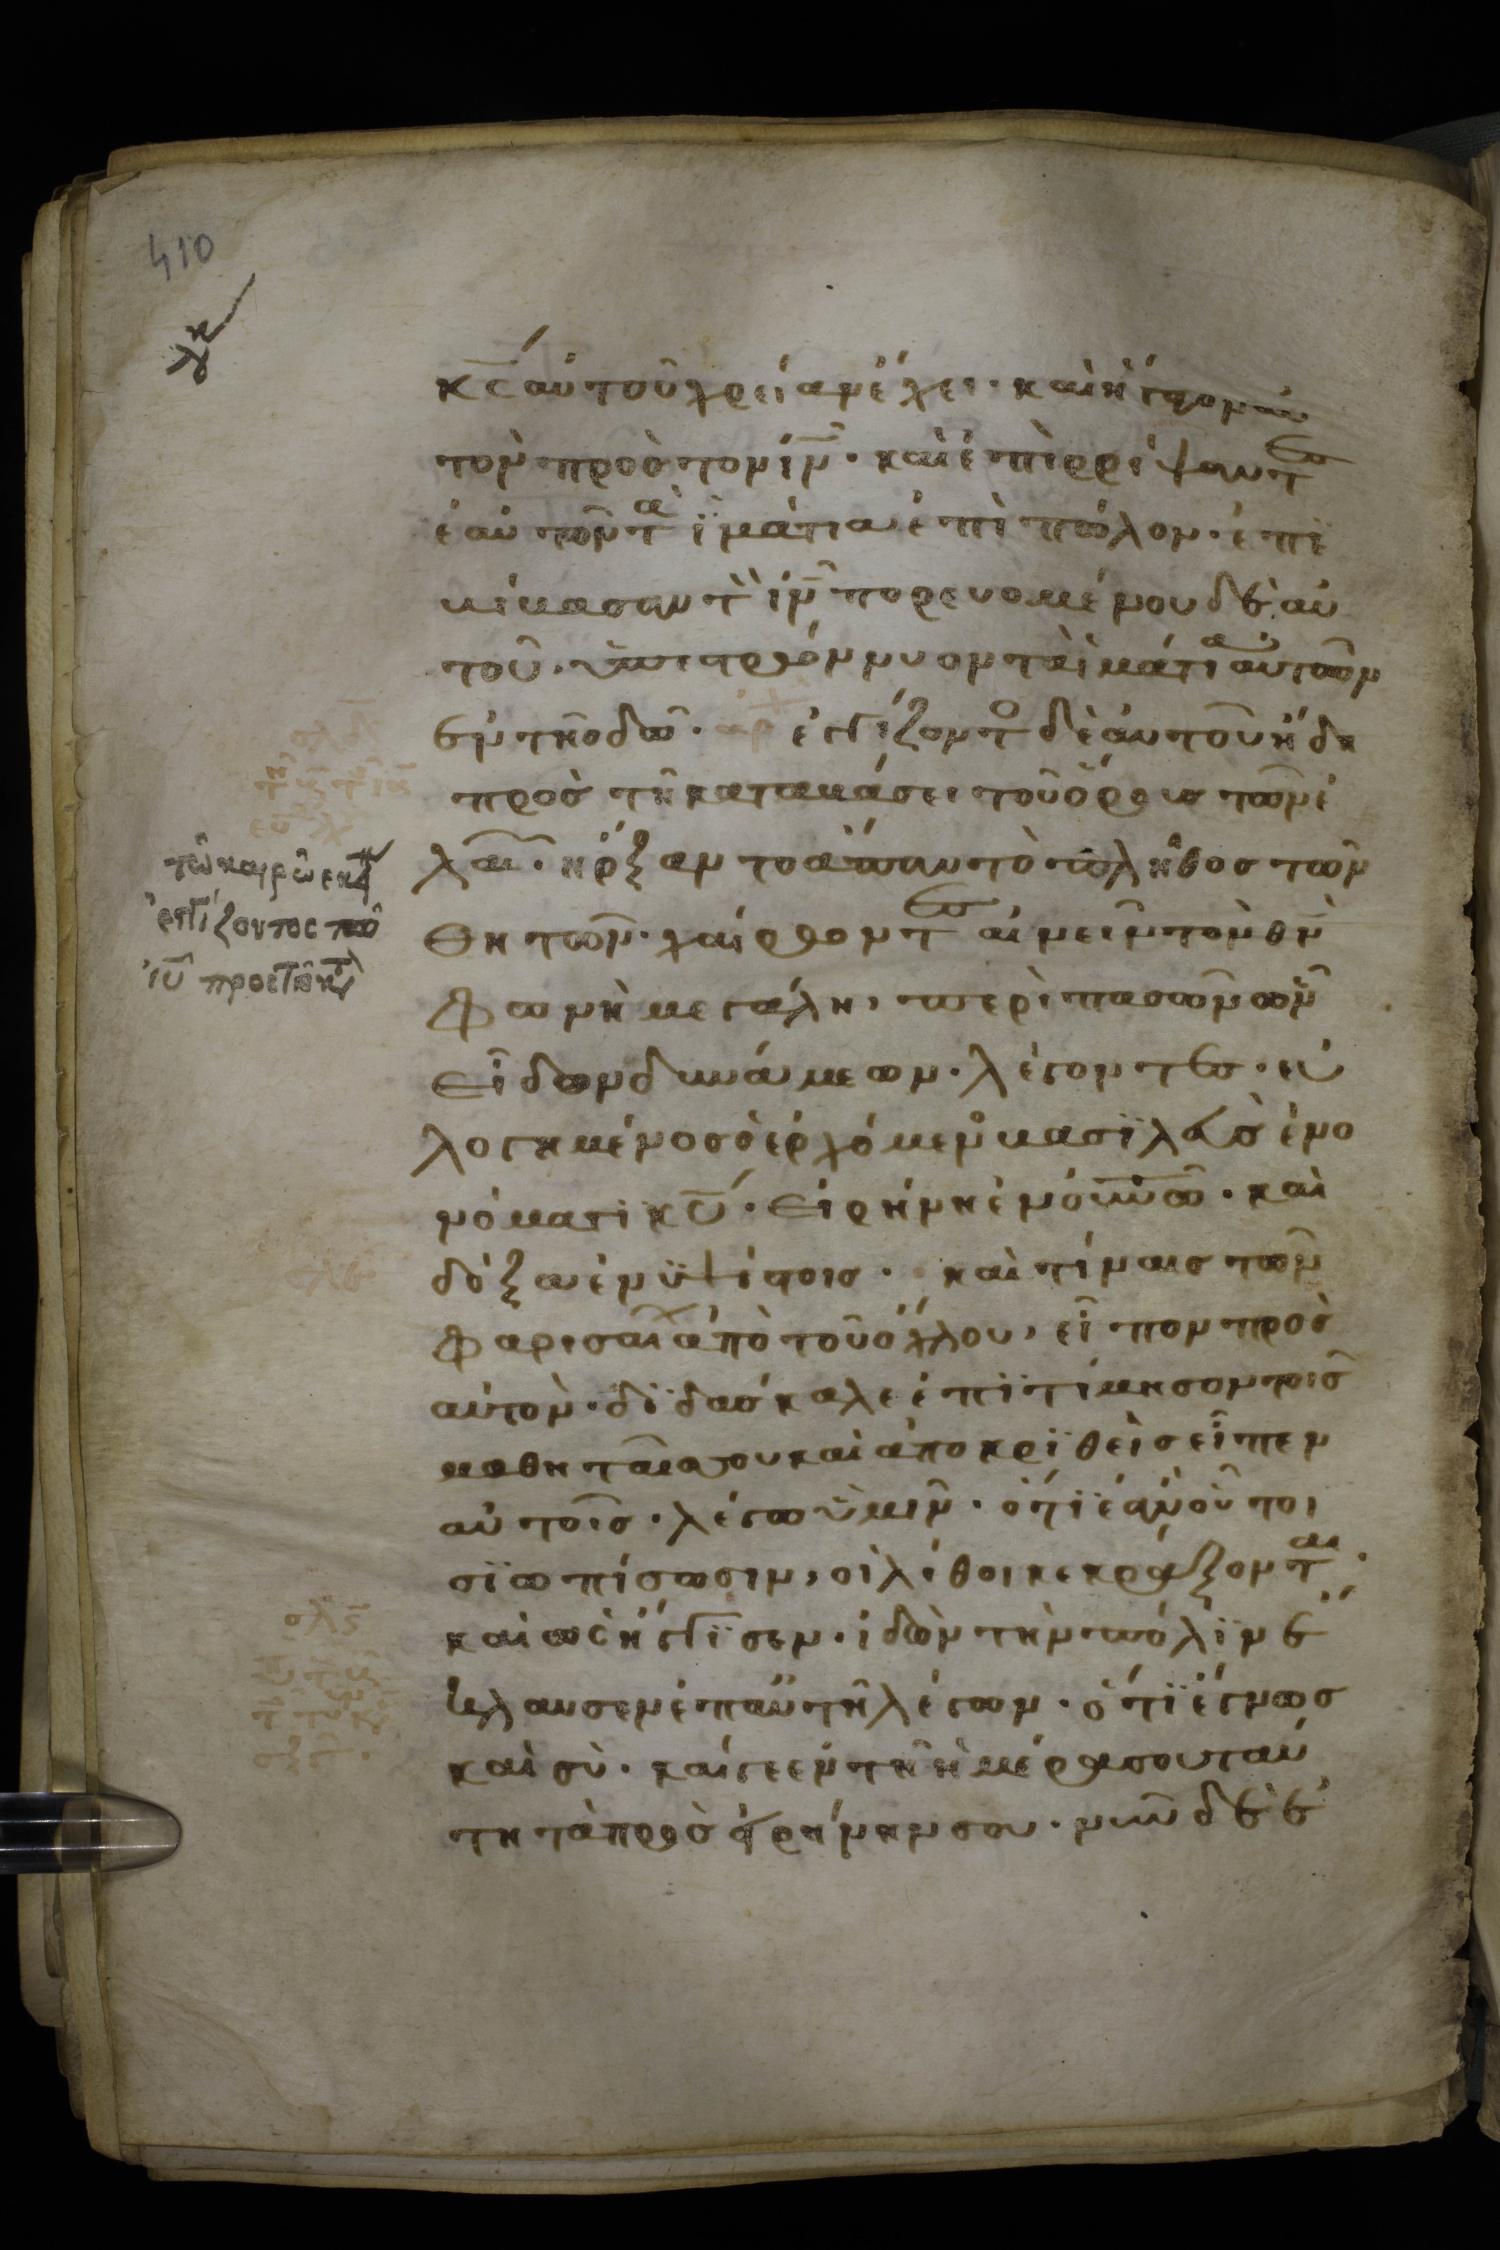 410
κ̅ς̅ αὐτοῦ χρείαν ἔχει· καὶ ἤγαγον αὐ
τὸν πρὸς τὸν ι̅ν̅· καὶ ἐπιρρίψαντες
ἑαυτῶν τὰ ἱμάτια ἐπὶ πῶλον· ἐπε
βίβασαν τὸν ι̅ν̅ πορευομένου δὲ αὐ
τοῦ· ὑπεστρώννυον τὰ ἱμάτια αὐτῶν
ἐν τῇ ὁδῷ· αρ ἐγγίζοντος δὲ αὐτοῦ ἤδη
πρὸς τῇ καταβάσει τοῦ ὄρους τῶν ἐ
λαιῶν· ἤρξαντο ἅπαν τὸ πλῆθος τῶν
μαθητῶν· χαίροντες αἰνεῖν τὸν θ̅ν̅
φωνῇ μεγάλῃ, περὶ πασῶν ὧν
εἶδον δυνάμεων· λέγοντες· εὐ
λογημένος ὁ ἐρχόμενος βασιλεὺς ἐν ὀ
νόματι κ̅υ̅· εἰρήνη ἐν οὐ̅ν̅ῷ· καὶ
δόξα ἐν ὑψίστοις· καί τινες τῶν
φαρισαίων ἀπὸ τοῦ ὄχλου, εἶπον πρὸς
αὐτὸν· διδάσκαλε ἐπιτίμησον τοῖς
μαθηταῖς σου καὶ ἀποκριθεὶς εἶπεν
αὐτοῖς· λέγω ὑμῖν· ὅτι ἐὰν οὗτοι
σιωπήσωσιν, οἱ λίθοι κεκράξονται·
καὶ ὡς ἤγγισεν· ἰδὼν τὴν πόλιν ἔ
κλαυσεν ἐπ αὐτῇ λέγων· ὅτι ἔγνως
καὶ σὺ· καί γε ἐν τῇ ἡμέρα σου ταύ
τη τὰ πρὸς εἰρήνην σου· νῦν δὲ ἐ
τῶ καιρῶ ἐκείνω
ἐγγίζοντος τοῦ
ι̅υ̅ πρὸς τῆ κατ